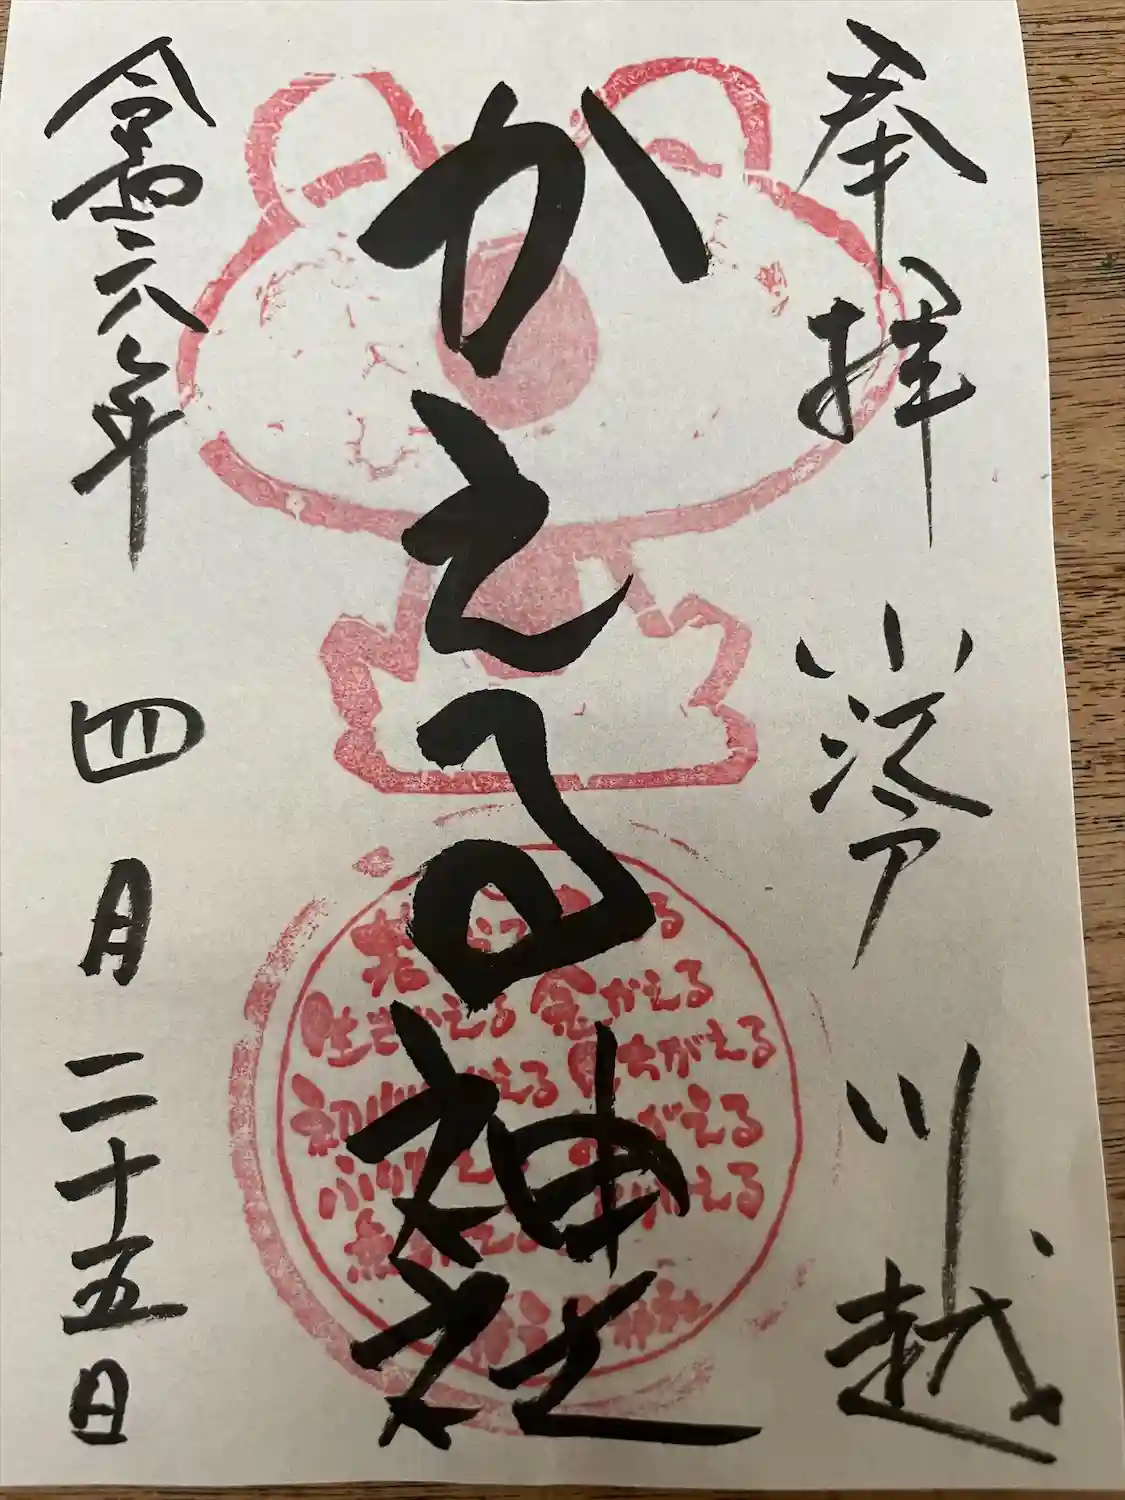 奉拝 小江戸 川越
かえる神社
令和六年 四月 二十五日
若がえる
生きかえる 金かえる
初心かえる 見ちがえる
ふりかえる